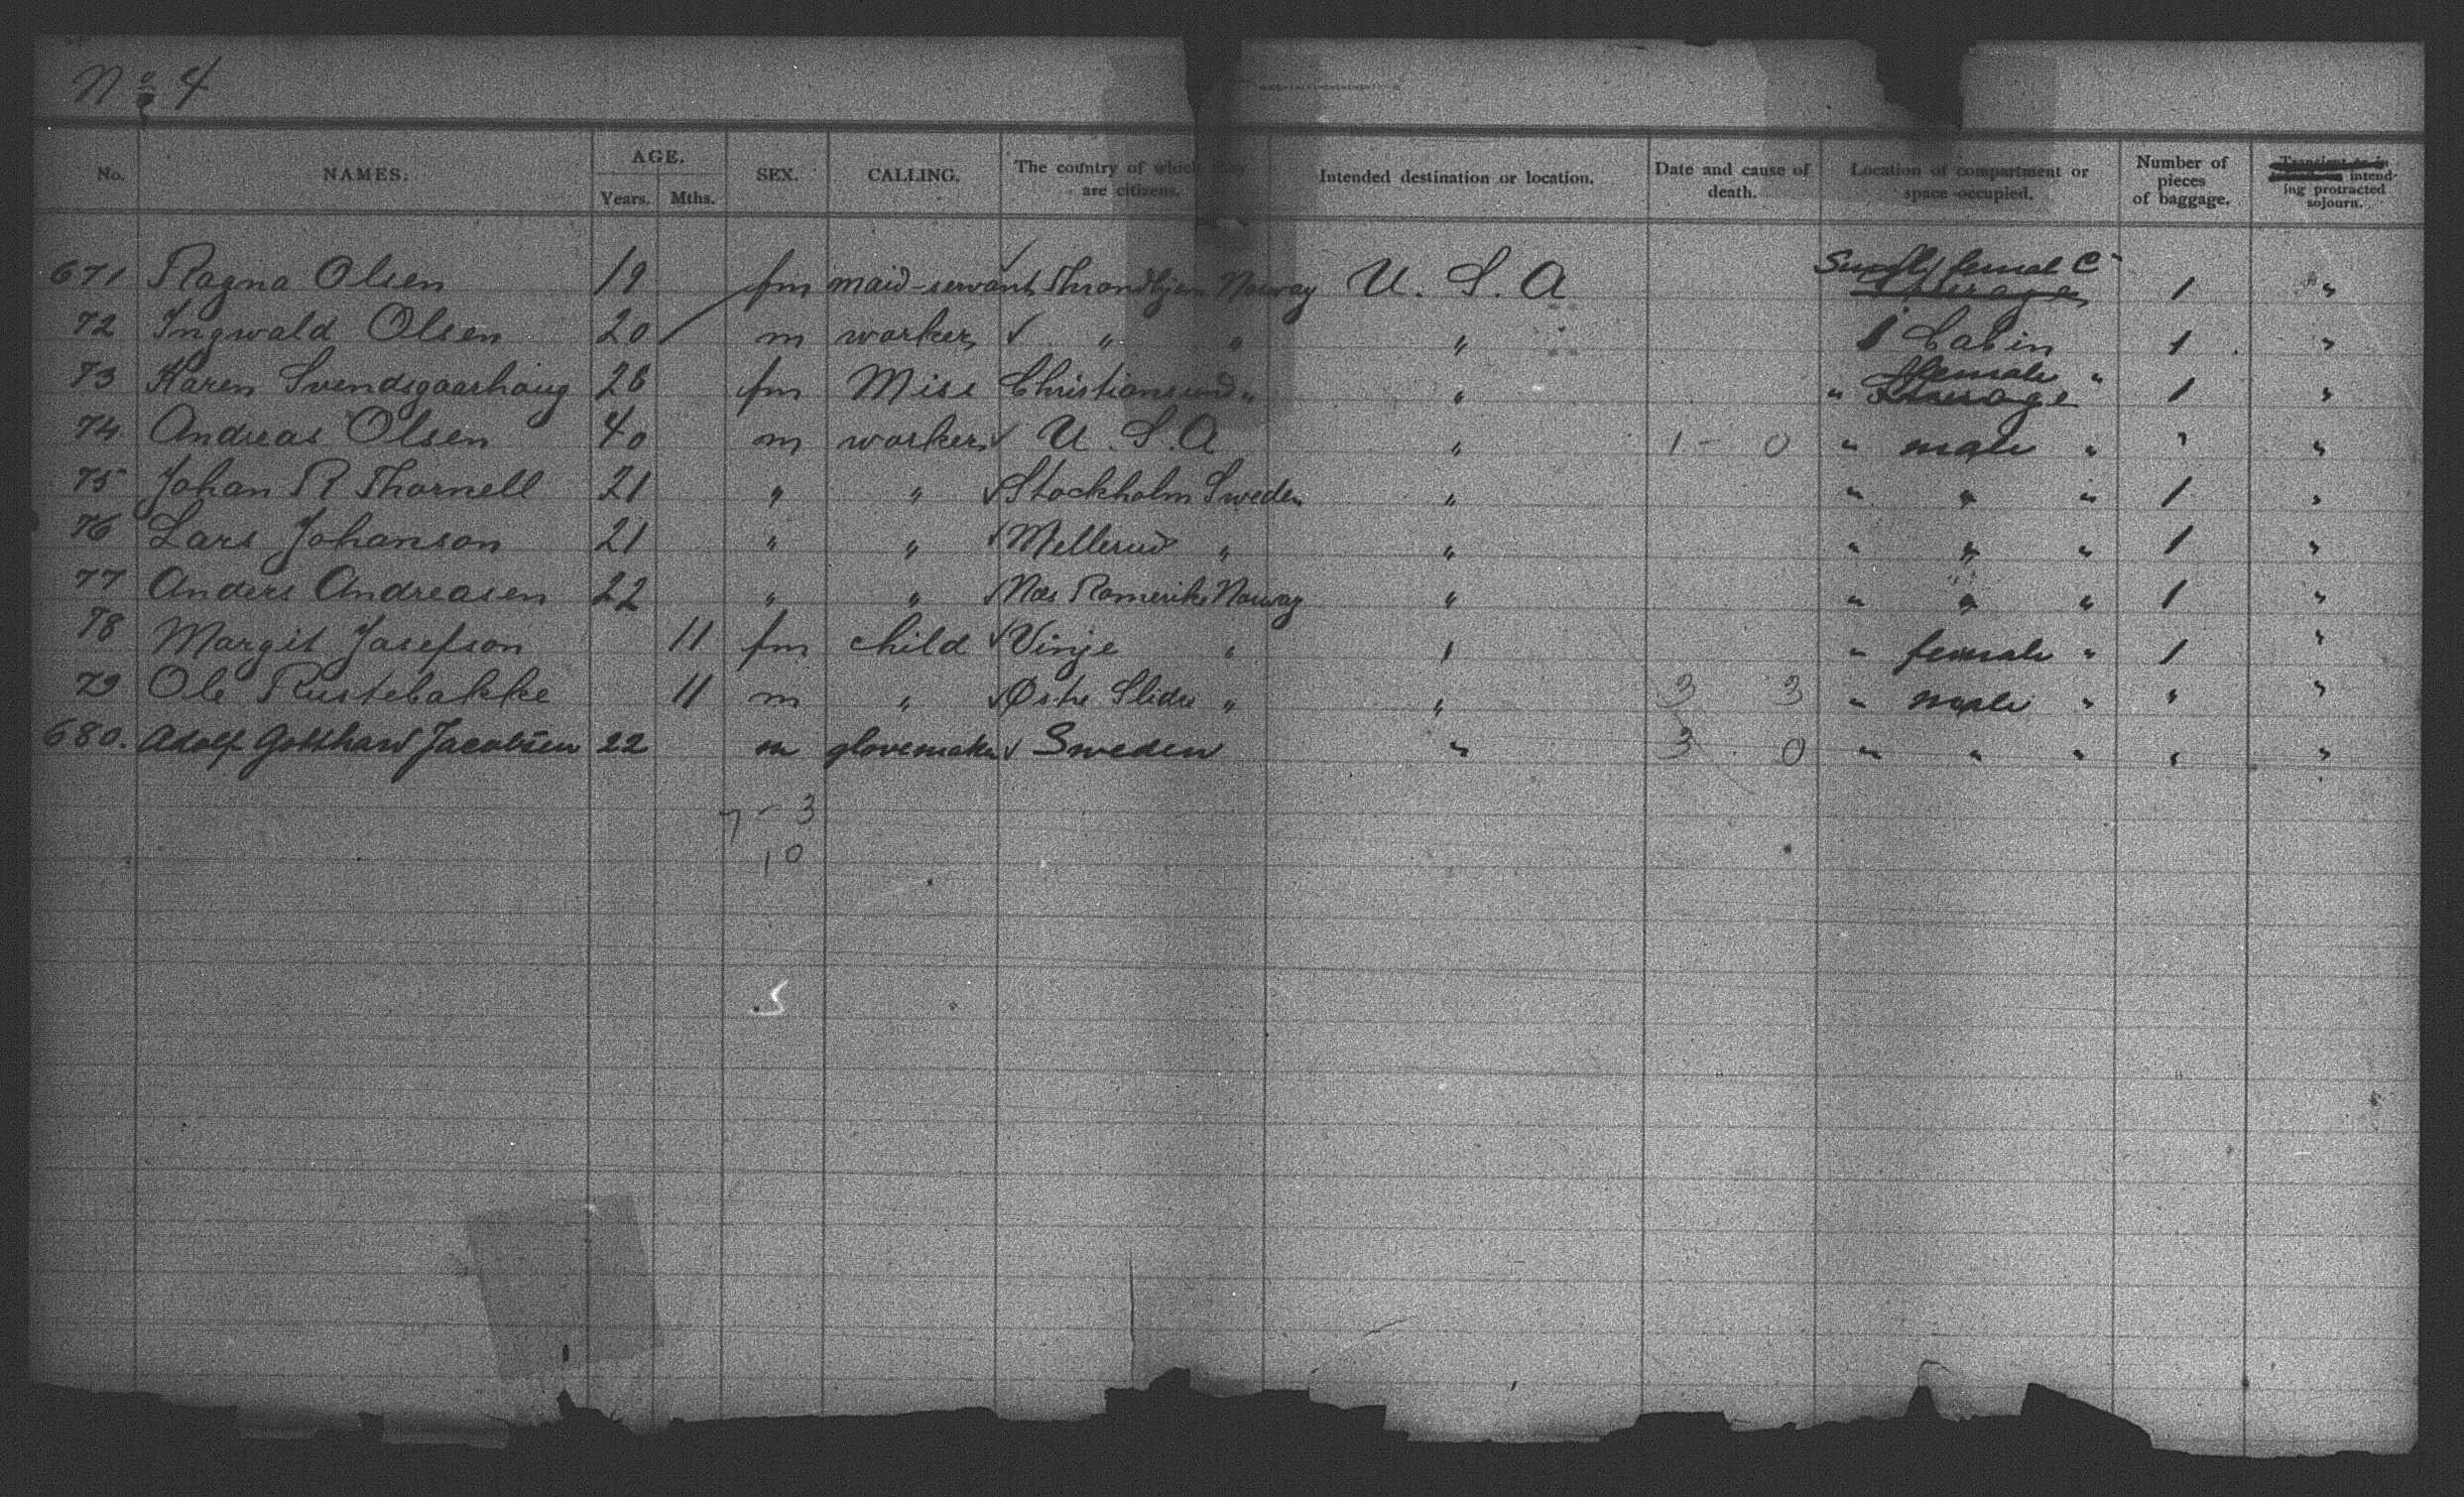 No 4
No. NAMES. AGE. Years. Mths. SEX. CALLING. The country of which they are citizens. Intended destination or location. Date and cause of death. Location of compartment or space occupied. Number of pieces of baggage. intending protracted sojourn.
671 Ragna Olsen 19 fm maid-servant Throndhjem Norway U. S. A female C 1 "
72 Ingwald Olsen 20 m worker " " " Cabin 1 "
73 Karen Svendsgaarhoug 26 fm Miss Christiansund " " " female " Steerage 1 "
74 Andreas Olsen 40 m worker U. S. A " 1 - 0 " male " " "
75 Johan R Thornell 21 " " Stockholm Sweden " " " " 1 "
76 Lars Johanson 21 " " Mellerud " " " " " 1 "
77 Anders Andreasen 22 " " Næs Romerike Norway " " " " 1 "
78 Margit Josefson 11 fm child Vinje " " " female " 1 "
79 Ole Rustebakke 11 m " Østre Slidre " " 3 3 " male " " "
680. Adolf Gotthard Jacobsen 22 m glovemaker Sweden " 3 0 " " " " "
7 - 3
10